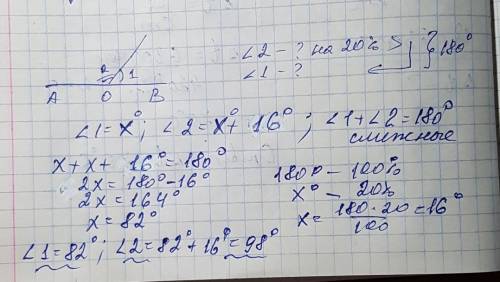 ∠2 - ? на 20% > } 180°
∠1 - ?
2 1
A O B
∠1 = x°; ∠2 = x + 16°; ∠1 + ∠2 = 180°
смежные
x + x + 16° = 180°
2x = 180° - 16°
2x = 164°
x = 82°
180° - 100%
x° - 20%
x = 180 · 20 / 100 = 16°
∠1 = 82°; ∠2 = 82° + 16° = 98°